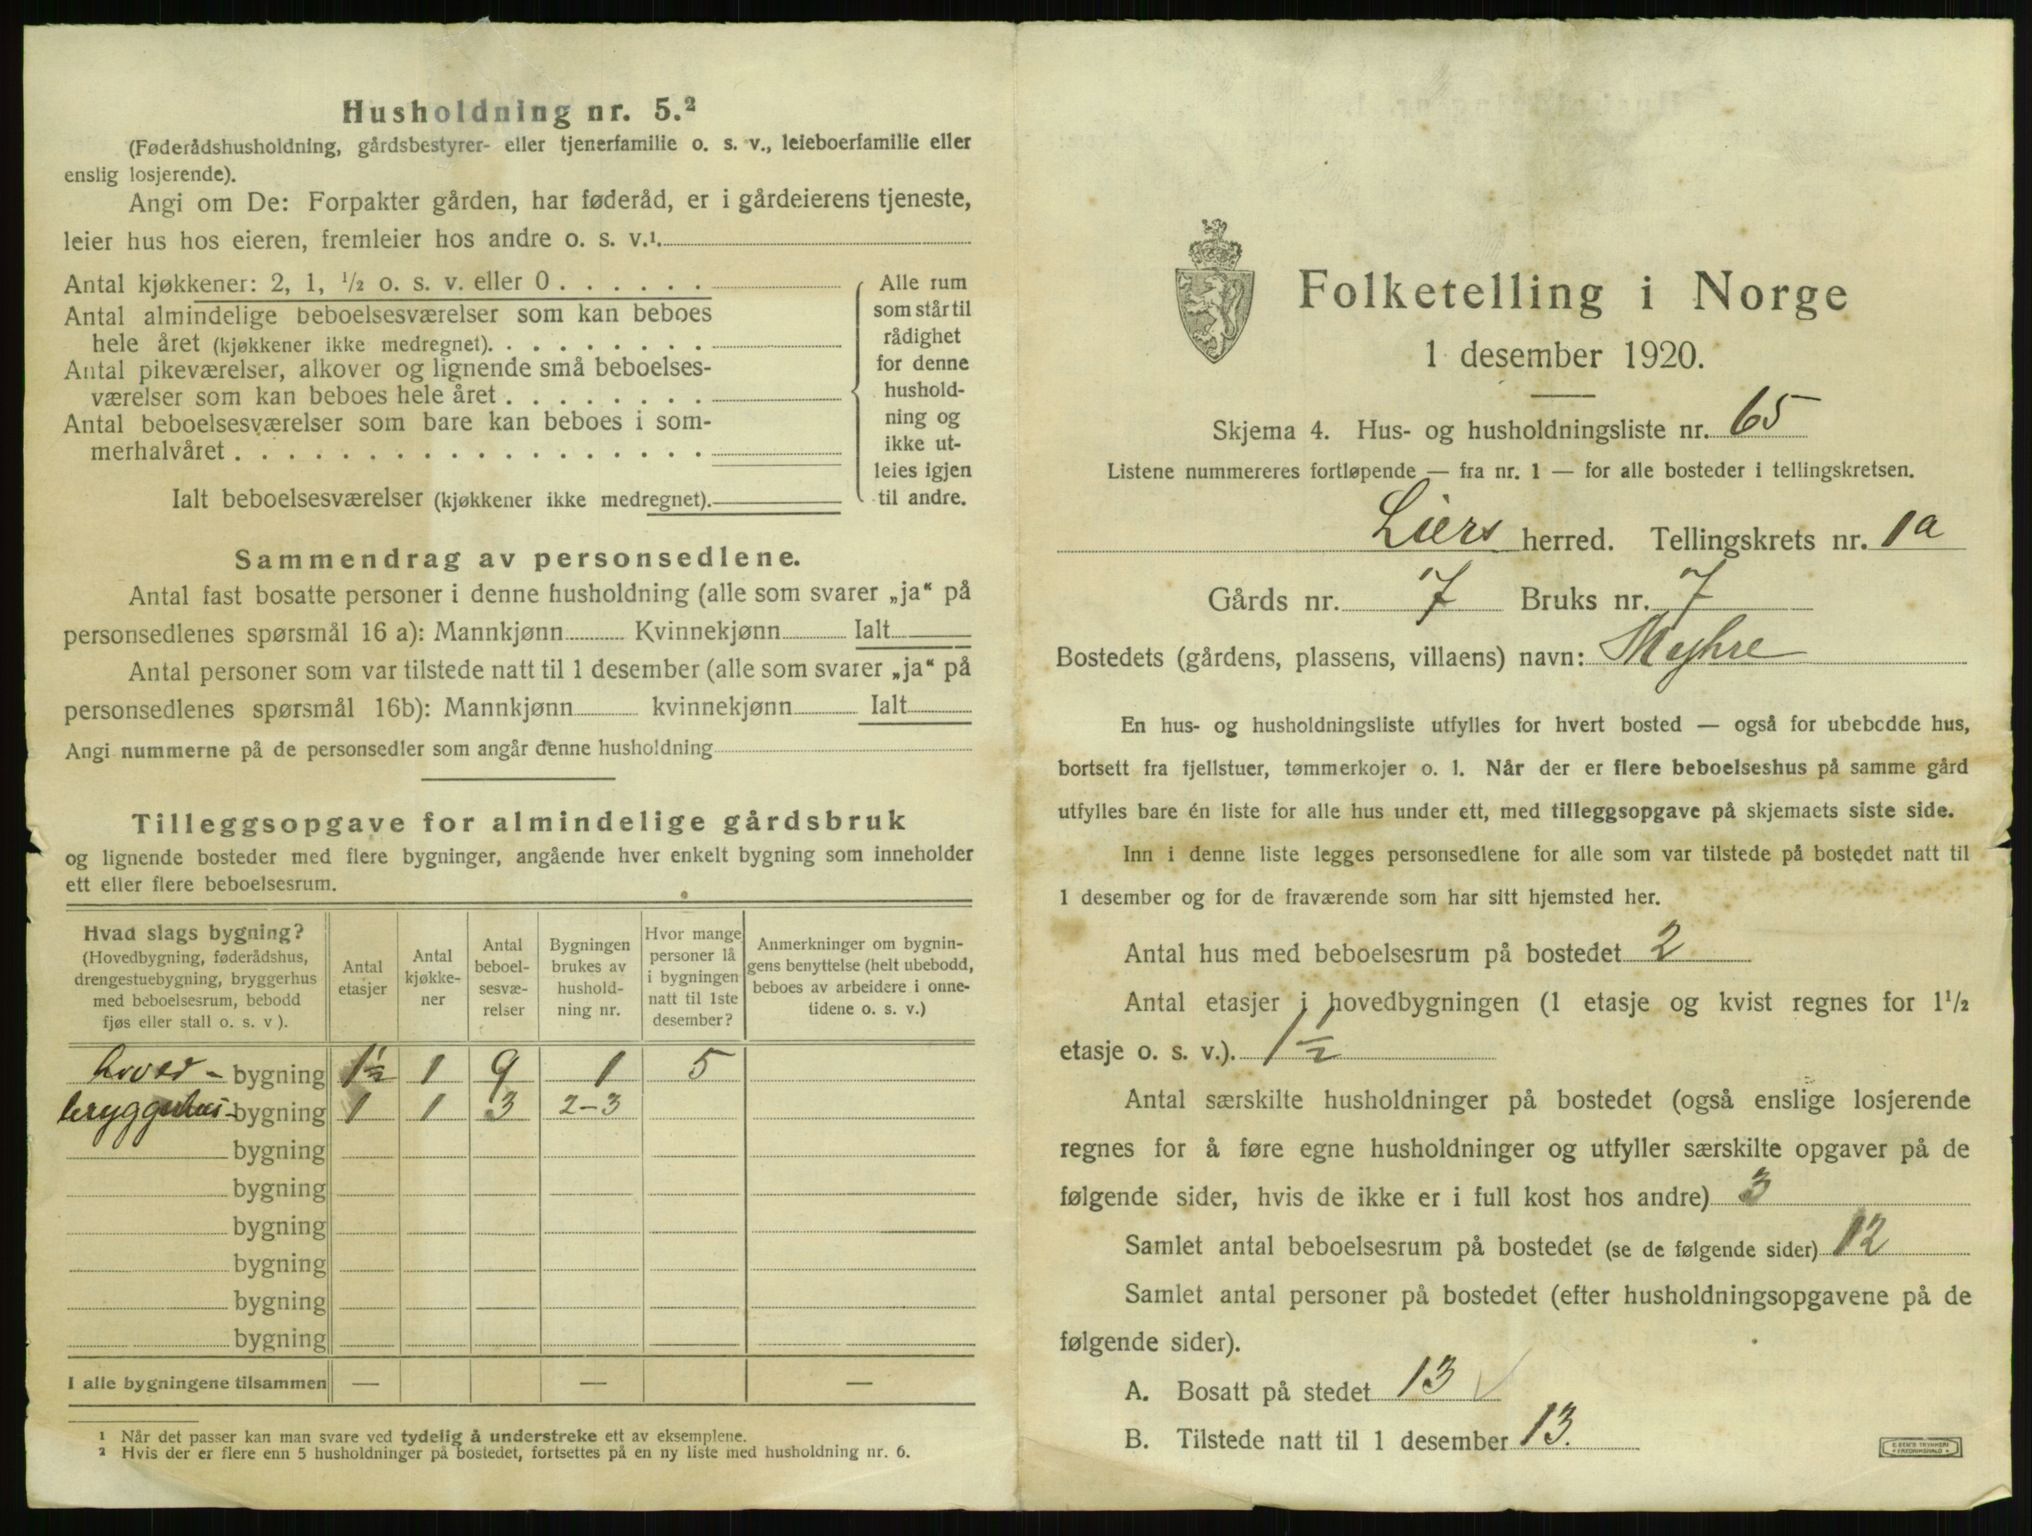 Husholdning nr. 5.²
(Føderådshusholdning, gårdsbestyrer- eller tjenerfamilie o. s. v., leieboerfamilie eller
enslig losjerende).
Angi om De: Forpakter gården, har føderåd, er i gårdeierens tjeneste,
leier hus hos eieren, fremleier hos andre o. s. v.¹
Antal kjøkkener: 2, 1, ½ o. s. v. eller 0 . . . . . .
Antal almindelige beboelsesværelser som kan beboes
hele året (kjøkkener ikke medregnet). . . . . . . . .
Antal pikeværelser, alkover og lignende små beboelses-
værelser som kan beboes hele året . . . . . . . .
Antal beboelsesværelser som bare kan beboes i som-
merhalvåret . . . . . . . . . . . . . . . . . .
Ialt beboelsesværelser (kjøkkener ikke medregnet).
Alle rum
som står til
rådighet
for denne
hushold-
ning og
ikke ut-
leies igjen
til andre.
Sammendrag av personsedlene.
Antal fast bosatte personer i denne husholdning (alle som svarer „ja“ på
personsedlenes spørsmål 16 a): Mannkjønn Kvinnekjønn Ialt
Antal personer som var tilstede natt til 1 desember (alle som svarer „ja“ på
personsedlenes spørsmål 16b): Mannkjønn kvinnekjønn Ialt
Angi nummerne på de personsedler som angår denne husholdning
Tilleggsopgave for almindelige gårdsbruk
og lignende bosteder med flere bygninger, angående hver enkelt bygning som inneholder
ett eller flere beboelsesrum.
Hvad slags bygning?
(Hovedbygning, føderådshus,
drengestuebygning, bryggerhus
med beboelsesrum, bebodd
fjøs eller stall o. s. v ).
Antal
etasjer
Antal
kjøkke-
ner
Antal
beboel-
sesvæ-
relser
Bygningen
brukes av
hushold-
ning nr.
Hvor mange
personer lå
i bygningen
natt til 1ste
desember?
Anmerkninger om bygnin-
gens benyttelse (helt ubebodd,
beboes av arbeidere i onne-
tidene o. s. v.)
hoved- bygning 1½ 1 9 1 5
bryggerhus- bygning 1 1 3 2-3
bygning
bygning
bygning
bygning
bygning
bygning
I alle bygningene tilsammen — — —
¹ Når det passer kan man svare ved tydelig å understreke ett av eksemplene.
² Hvis der er flere enn 5 husholdninger på bostedet, fortsettes på en ny liste med husholdning nr. 6.
Folketelling i Norge
1 desember 1920.
Skjema 4. Hus- og husholdningsliste nr. 65
Listene nummereres fortløpende — fra nr. 1 — for alle bosteder i tellingskretsen.
Liers herred. Tellingskrets nr. 1a
Gårds nr. 7 Bruks nr. 7
Bostedets (gårdens, plassens, villaens) navn: Myhre
En hus- og husholdningsliste utfylles for hvert bosted — også for ubebodde hus,
bortsett fra fjellstuer, tømmerkojer o. l. Når der er flere beboelseshus på samme gård
utfylles bare én liste for alle hus under ett, med tilleggsopgave på skjemaets siste side.
Inn i denne liste legges personsedlene for alle som var tilstede på bostedet natt til
1 desember og for de fraværende som har sitt hjemsted her.
Antal hus med beboelsesrum på bostedet 2
Antal etasjer i hovedbygningen (1 etasje og kvist regnes for 1½
etasje o. s. v.). 1½
Antal særskilte husholdninger på bostedet (også enslige losjerende
regnes for å føre egne husholdninger og utfyller særskilte opgaver på de
følgende sider, hvis de ikke er i full kost hos andre) 3
Samlet antal beboelsesrum på bostedet (se de følgende sider) 12
Samlet antal personer på bostedet (efter husholdningsopgavene på de
følgende sider).
A. Bosatt på stedet 13 ✓
B. Tilstede natt til 1 desember 13.
E. SEM'S TRYKKERI
FREDRIKSHALD